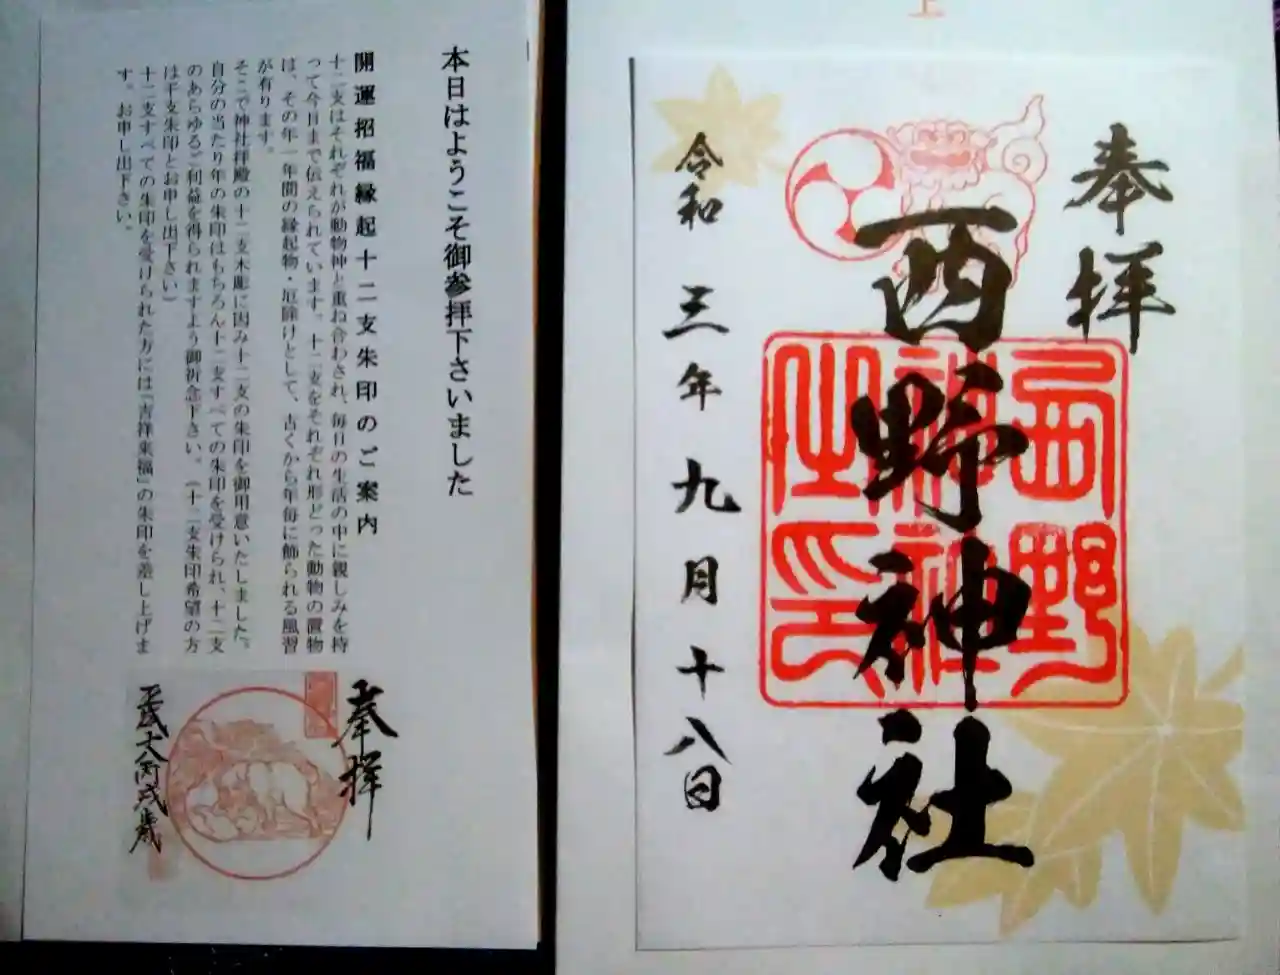 本日はようこそ御参拝下さいました
開運招福縁起十二支朱印のご案内
十二支はそれぞれが動物神と重ね合わされ、毎日の生活の中に親しみを持
って今日まで伝えられています。十二支をそれぞれ形どった動物の置物
は、その年一年間の縁起物・厄除けとして、古くから年毎に飾られる風習
が有ります。
そこで神社拝殿の十二支木彫に因み十二支の朱印を御用意いたしました。
自分の当たり年の朱印はもちろん十二支すべての朱印を受けられ、十二支
のあらゆるご利益を得られますよう御祈念下さい。（十二支朱印希望の方
は干支朱印とお申し出下さい）
十二支すべての朱印を受けられた方には『吉祥来福』の朱印を差し上げま
す。お申し出下さい。
奉拝
平成十八丙戌歳
上
奉拝
西野神社
西野
神社
之印
令和三年九月十八日